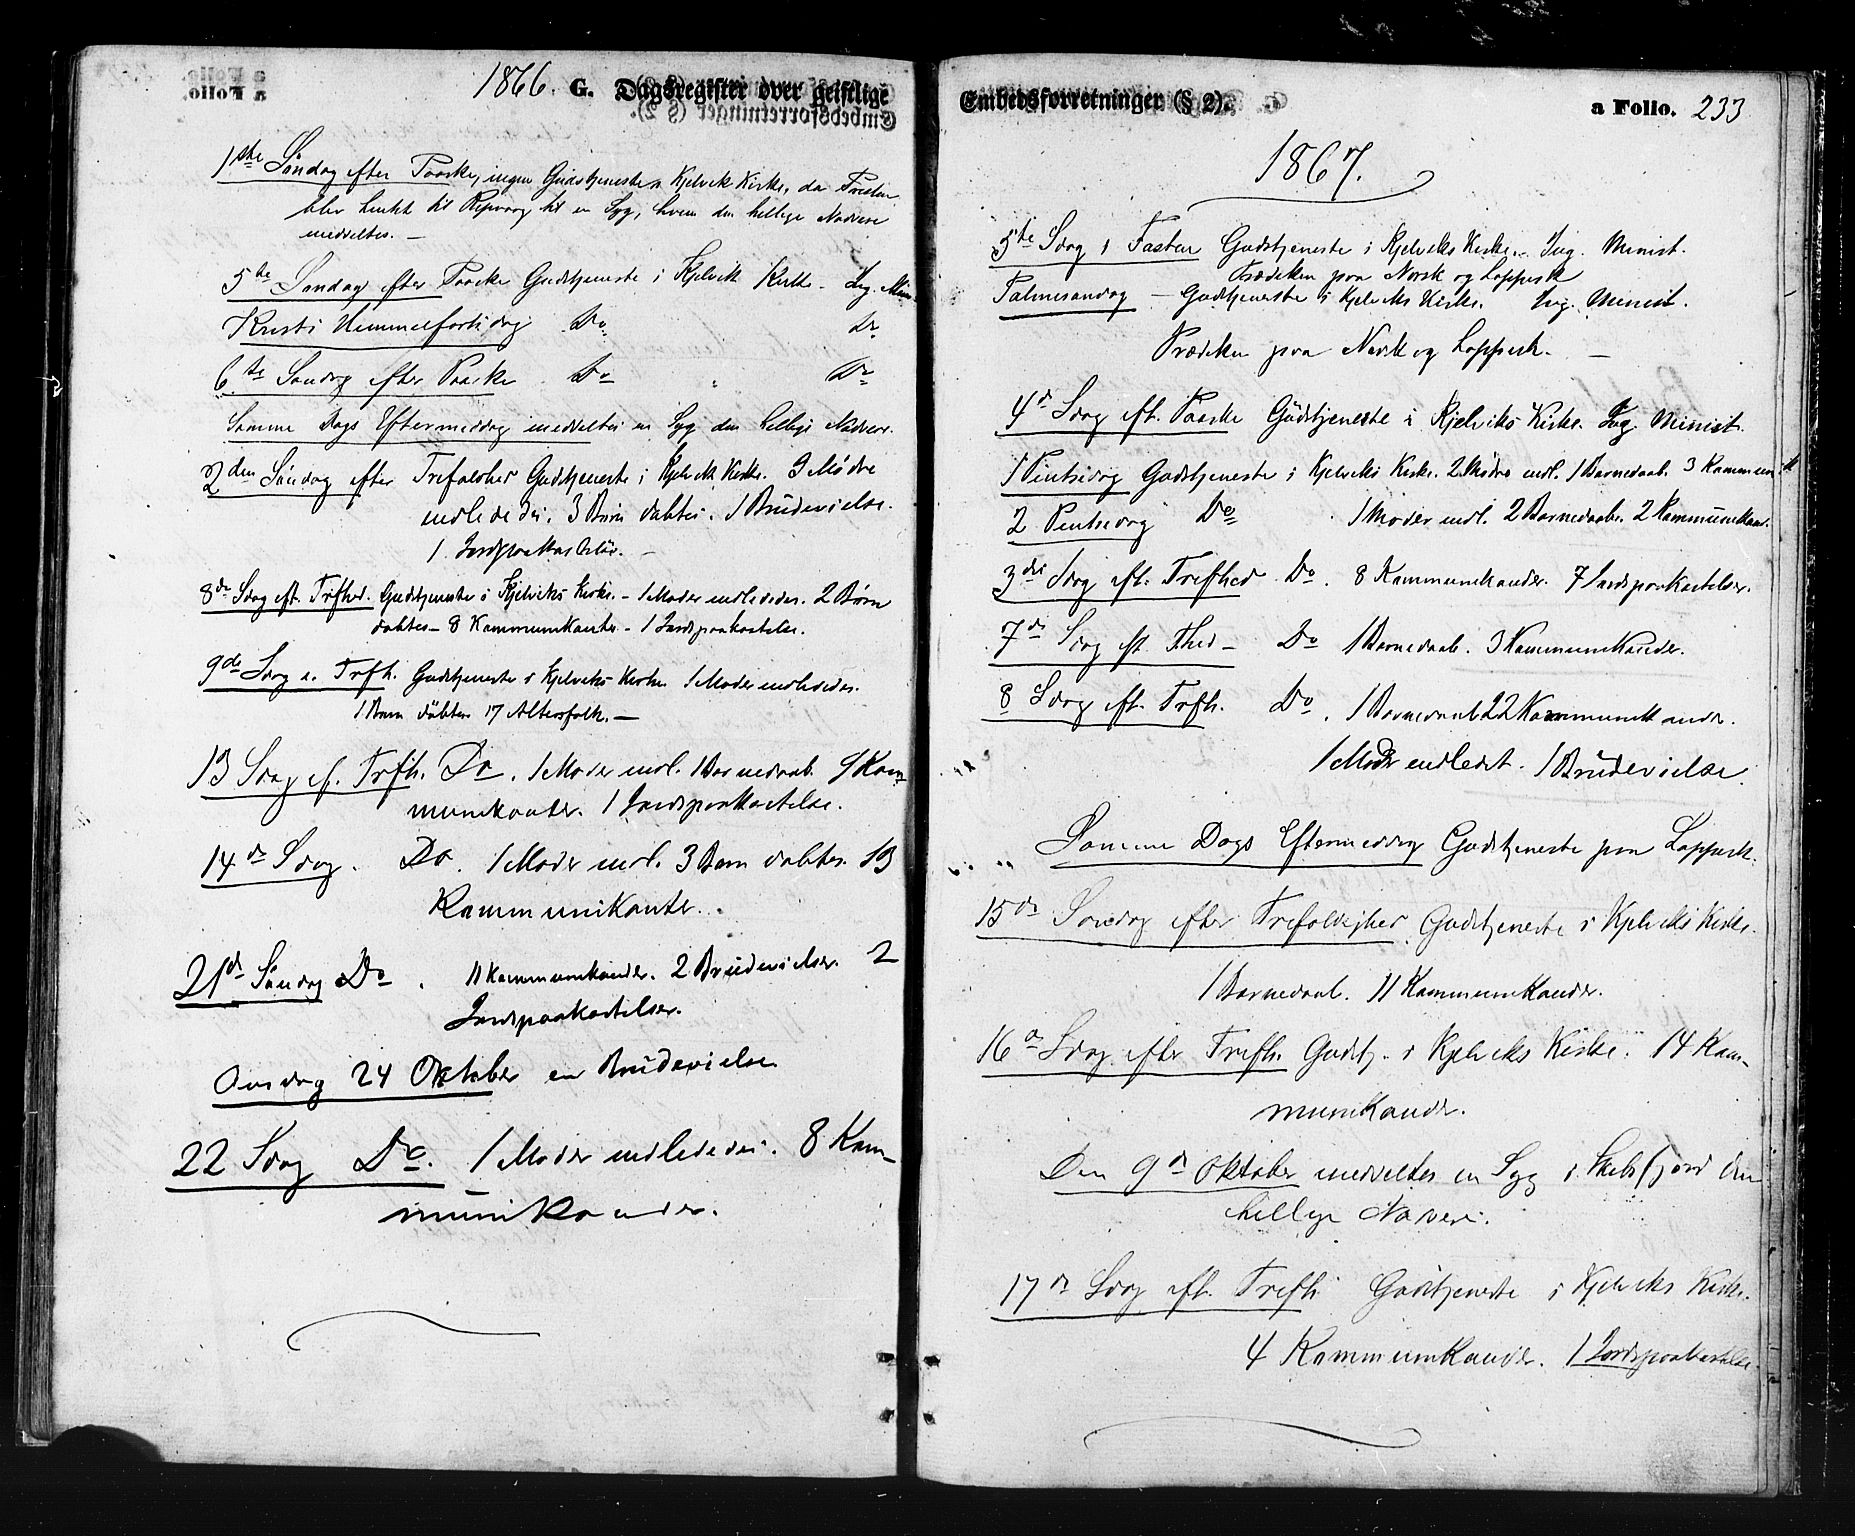 1866. G. Dagsregister over geistlige
1ste Søndag efter Paaske, ingen Gudstjeneste i Kjelvik Kirke, da Præsten
blev hentet til Repvaag til en Syg, hvem den hellige Nadvere
meddeltes. —
5te Søndag efter Paaske Gudstjeneste i Kjelvik Kirke - Ing. Min.
Kristi Himmelfartsdag Do Do
6te Søndag efter Paaske Do " Do
Samme Dags Eftermiddag meddeltes en Syg den hellige Nadvere.
2den Søndag efter Trefoldhed Gudstjeneste i Kjelvik Kirke. 3 Mødre
indledede. 3 Børn døbtes. 1 Brudevielse.
1 Jordpaakastelse. —
8de Sdag eft. Trefhed. Gudstjeneste i Kjelviks Kirke. - 1 Moder indlededes. 2 Børn
døbtes - 8 Kommunikanter - 1 Jordpaakastelse.
9de Sdag e. Trefh. Gudstjeneste i Kjelviks Kirke 1 Moder indlededes.
1 Barn døbtes 17 Altersfolk. —
13 Sdag ef. Trefh. Do. 1 Moder indl. 1 Barnedaab. 9 Kom-
munikanter. 1 Jordspaakastelse.
14de Sdag. Do. 1 Moder indl. 3 Børn døbtes. 13
Kommunikanter.
21de Søndag Do. 11 Kommunikander. 2 Brudevielser. 2
Jordspaakastelser.
Onsdag 24 Oktober en Brudevielse
22 Sdag Do. 1 Moder indlededes. 8 Kom-
munikander.
Embedsforretninger (§ 2). a Folio. 233
1867.
5te Sdag i Fasten Gudstjeneste i Kjelviks Kirke. Ing. Minist.
Prædiken paa Norsk og Lappisk
Palmesøndag - Gudstjeneste i Kjelviks Kirke. Ing. Minist.
Prædiken paa Norsk og Lappisk. —
4de Sdag eft. Paaske Gudstjeneste i Kjelviks Kirke. Ing. Minist.
1 Pintsedag Gudstjeneste i Kjelviks Kirke. 2 Mødre indl. 1 Barnedaab. 3 Kommunik
2 Pintsedag Do 1 Moder indl. 2 Barnedaabe. 2 Kommunikand.
3die Sdag eft. Trefhed Do. 8 Kommunikander. 7 Jordspaakastelser.
7de Sdag eft. Thed - Do 1 Barnedaab. 3 Kommunikander.
8 Sdag eft. Trefh. Do. 1 Barnedaab 22 Kommunikander.
1 Moder indledet. 1 Brudevielse.
" " Samme Dags Eftermiddag Gudstjeneste paa Lappisk.
15de Søndag efter Trefoldighed Gudstjeneste i Kjelviks Kirke.
1 Barnedaab. 11 Kommunikander.
16de Sdag efter Trefh. Gudstj. i Kjelviks Kirke. 14 Kom-
munikander.
Den 9de Oktober meddeltes en Syg i den
hellige Nadvere.
17de Sdag eft. Trefh. Gudstjeneste i Kjelviks Kirke.
4 Kommunikander. 1 Jordspaakastelse